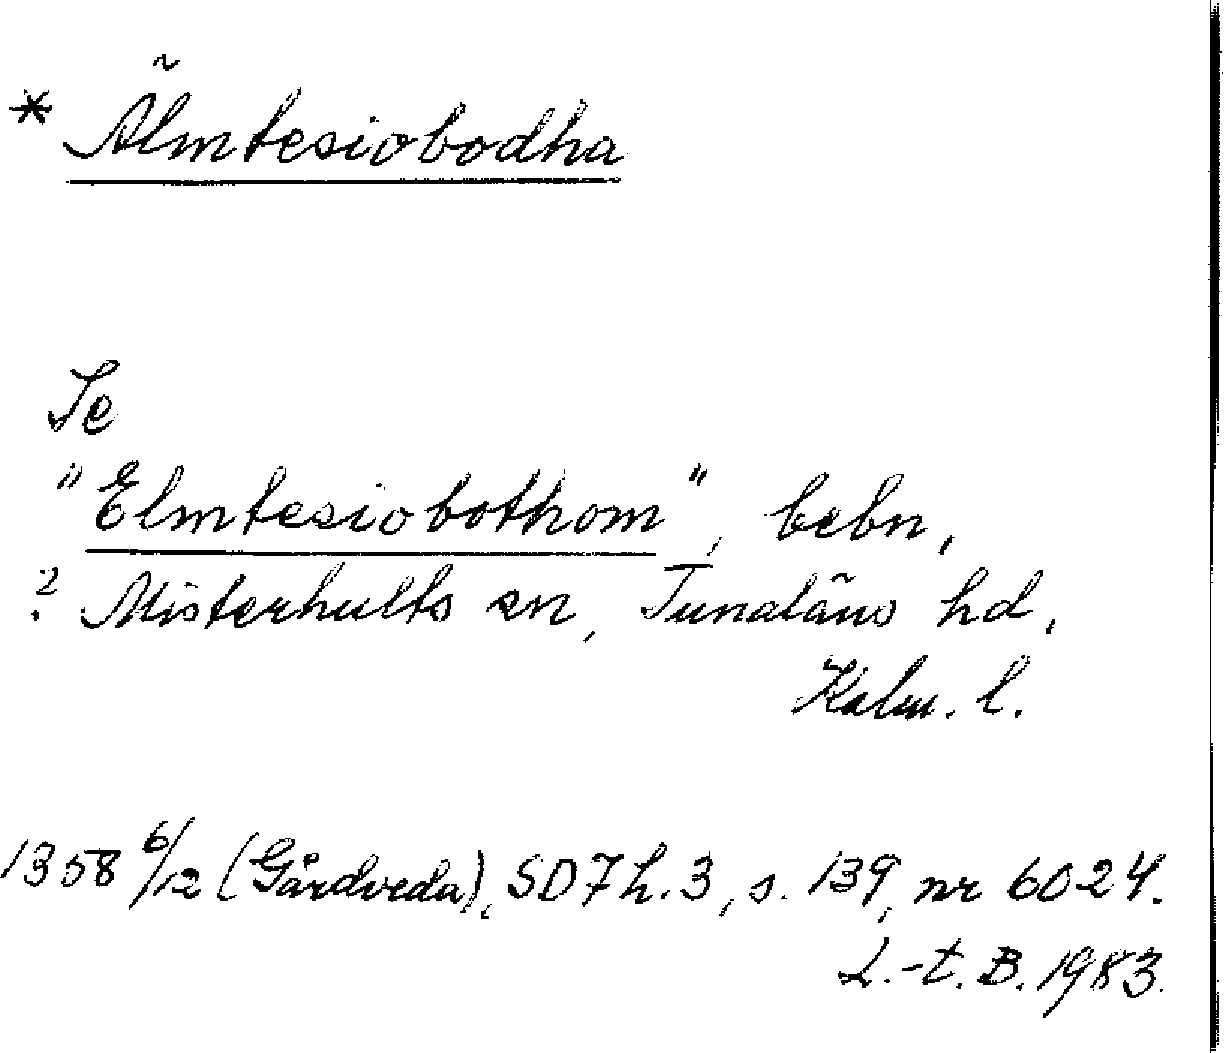 * Älmtesiobodha
Se
"Elmtesiobothom", bebn,
? Misterhults sn, Tunaläns hd,
Kalm. l.
1358 6/12 (Gårdveda), SD7h.3, s. 139, nr 6024.
L.-t. B. 1983.